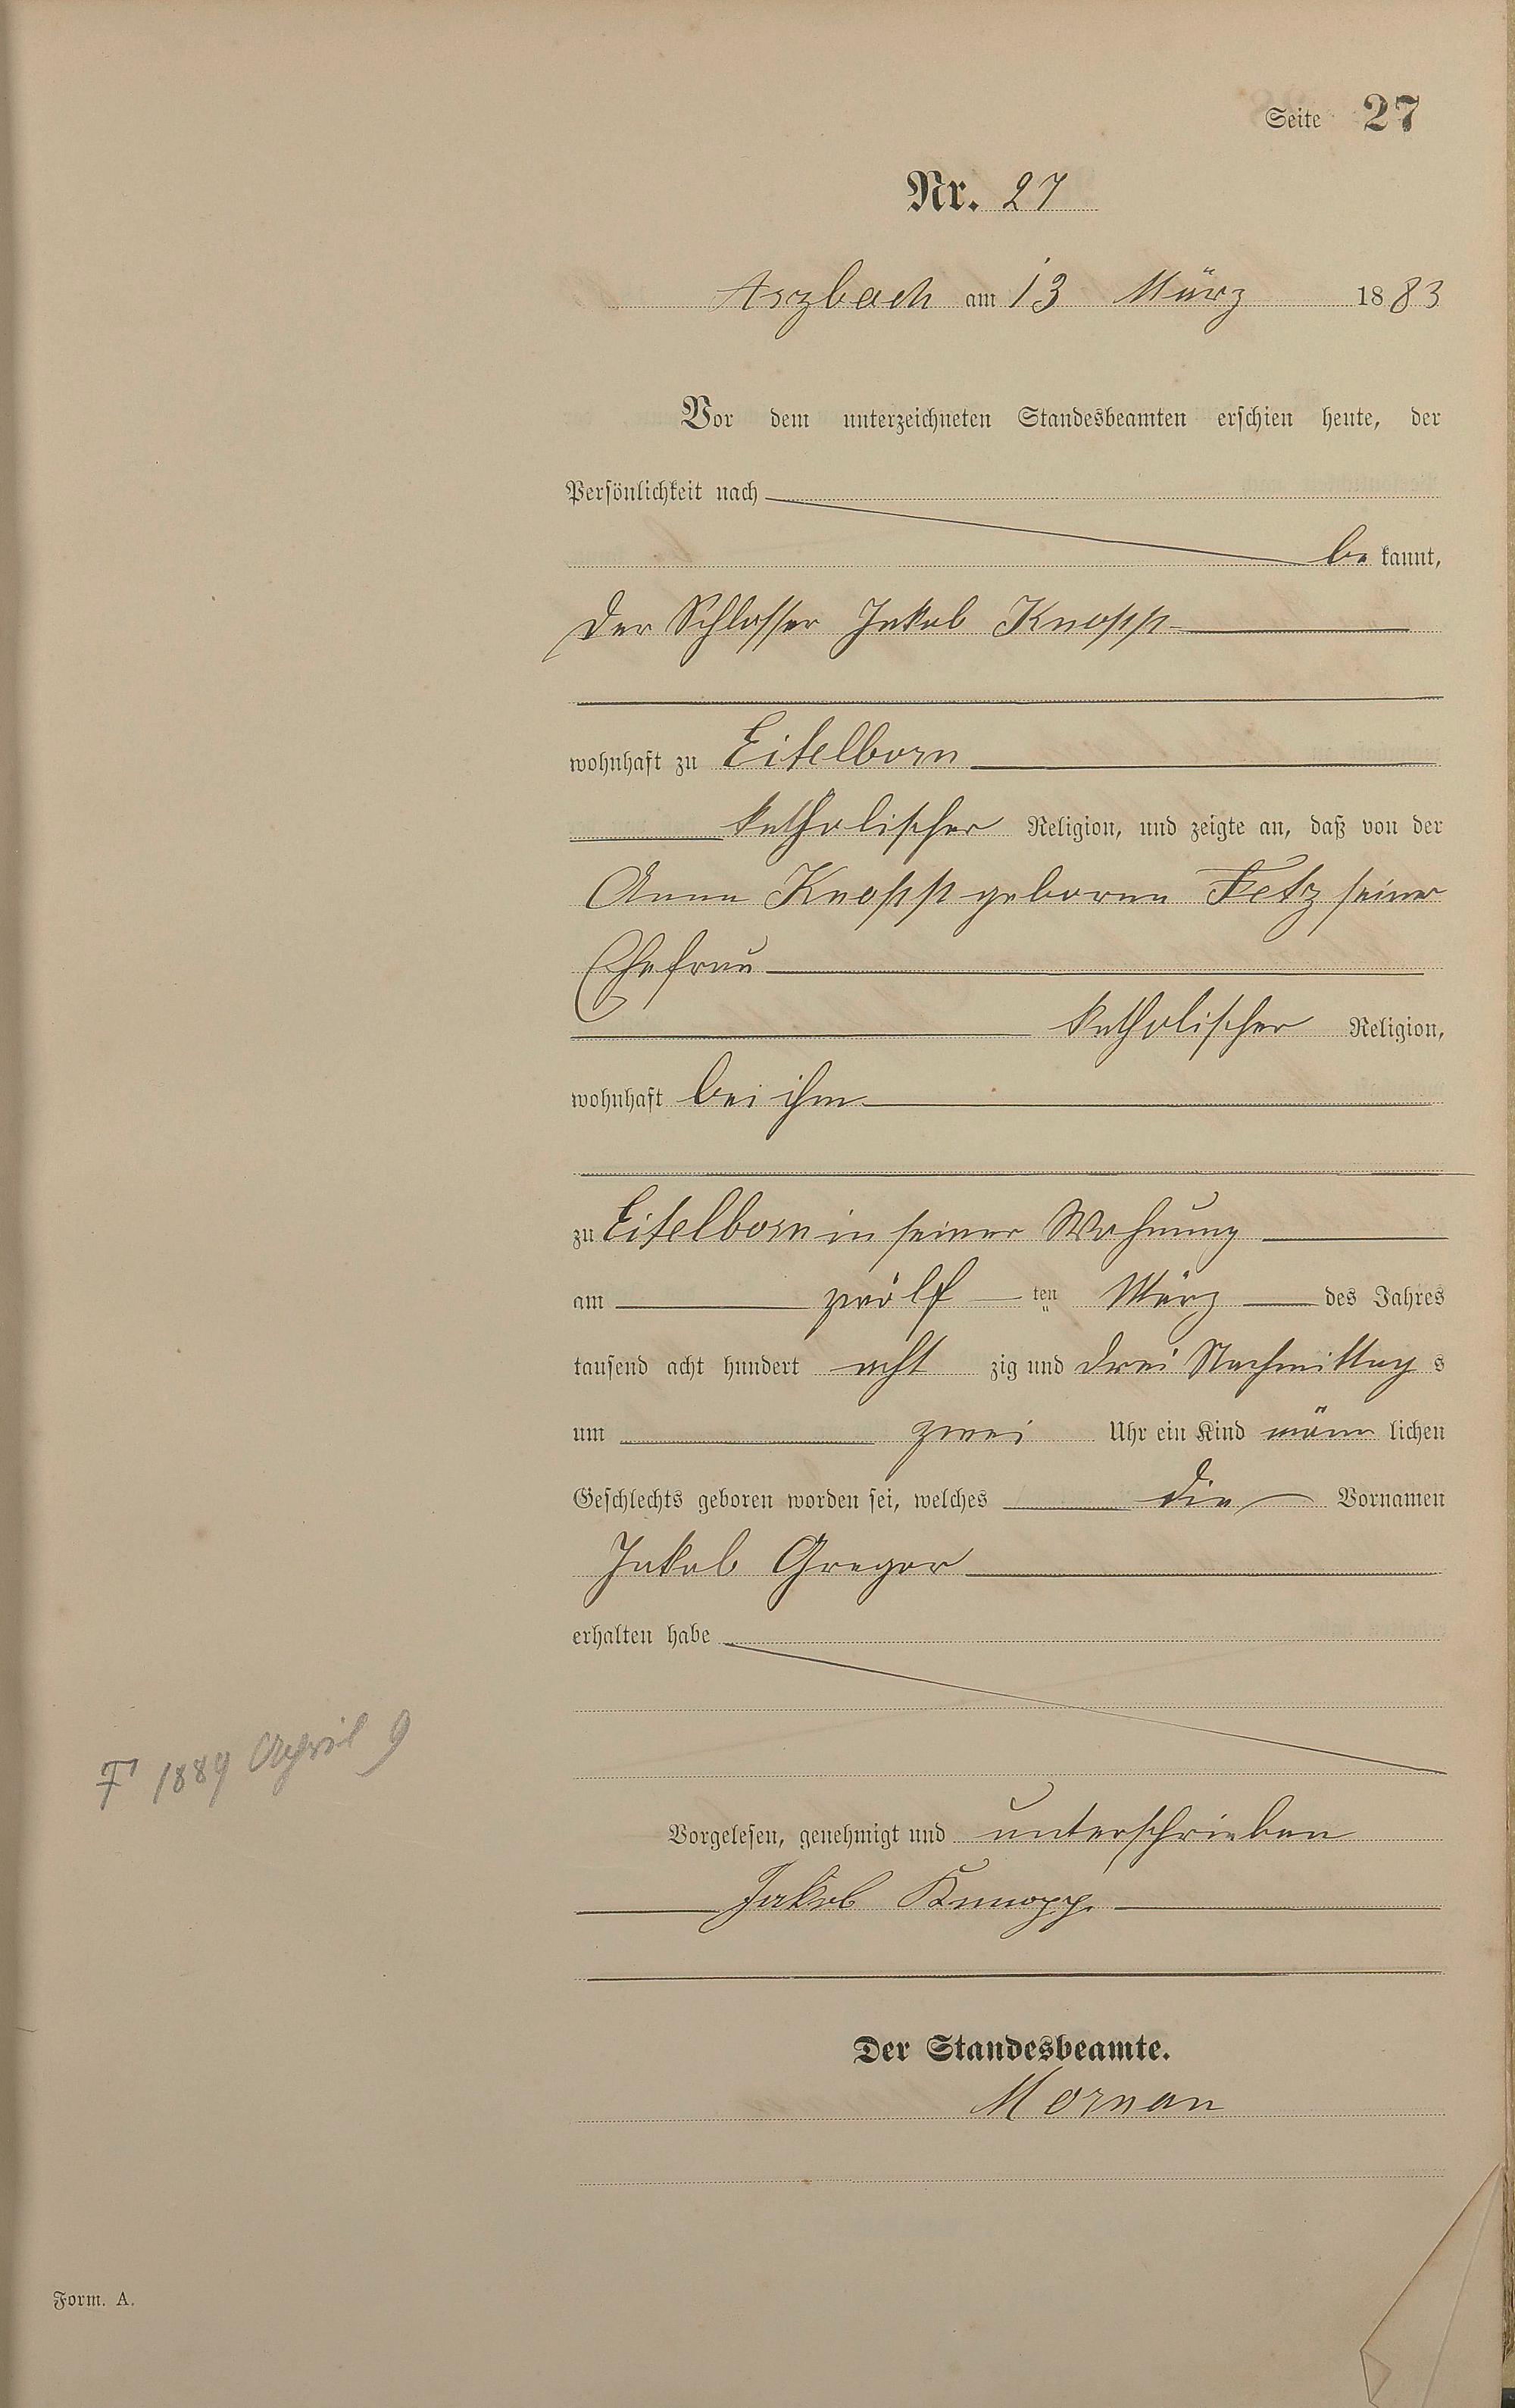 Seite 27
Nr. 27
Arzbach am 13 März 1883
Vor dem unterzeichneten Standesbeamten erschien heute, der
Persönlichkeit nach
be kannt,
der Schlosser Jakob Knopp
wohnhaft zu Eitelborn
katholischer Religion, und zeigte an, daß von der
Anna Knopp geborene Fetz seiner
Ehefrau
katholischer Religion,
wohnhaft bei ihm
zu Eitelborn in seiner Wohnung
am zwölf ten März des Jahres
tausend acht hundert acht zig und drei Nachmittag s
um zwei Uhr ein Kind männ lichen
Geschlechts geboren worden sei, welches die Vornamen
Jakob Gregor
erhalten habe
† 1889 April 9
Vorgelesen, genehmigt und unterschrieben
Jakob Knnopp.
Der Standesbeamte.
Mornan
Form. A.